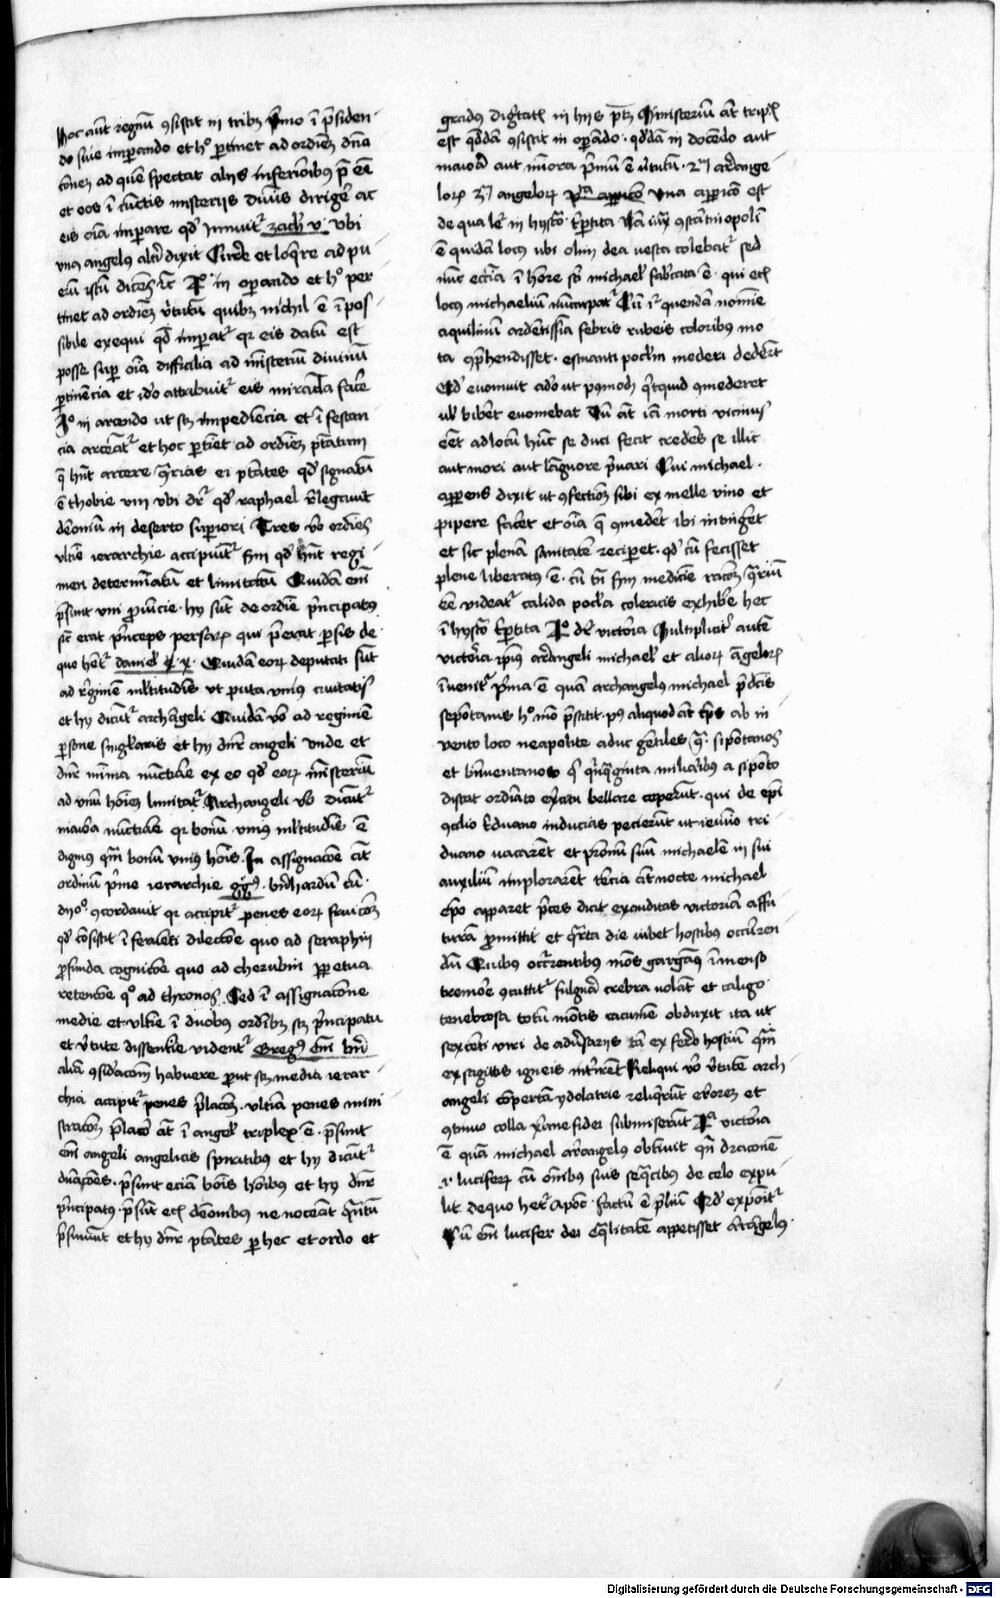 Hoc aut regnū ꝯsistit in tribꝫ pͥmo ī p̄siden
do sive imperando et hͦ ꝑtinet ad ordinē dn̄a
ad quē spectat alijs inferioribus
et eos ī cunctis misterijs divīs dirigere ac
eis oīa imperare qd̄ innuitͬ zach v ubi
unꝰ angelus altͥ dixit Curre et loqͥre ad pu
erū istū dicens Iͦ in operando et hͦ per
tinet ad ordinē vͥtutū quibꝫ nichil ē īpos
sibile exequi qd̄ imperatͬ qr eis datū est
posse sup oīa difficilia ad ministeriū divinū
ꝑtinencia et ideo attribuitͬ eis miracula facͤe
in arcendo ut scꝫ impediencia et īfestan
cia arceātͬ et hoc ꝑtinet ad ordinē ptātum
q̄ hn̄t arcere ꝯrias ptates qd̄ signatū
ē thobie viii ubi dͬ qd̄ raphael relegavit
demoniū in deserto superiori Tres vͦo ordies
ultīe ierarchie accipiūtͬ scdm qd̄ hn̄t regi
men determinatū et limitatū Quidā eīm
p̄sunt uni provincie hij sūt de ordie pͥncipatus
sic erat pͥnceps persarꝫ qui p̄erat persis de
quo hetͬ daniel x Quidā eorꝫ deputati sūt
ad regimē multitudinis ut puta unius civitatis
et hij dicūtͬ archāgeli Quidā vͦo ad regimē
ꝑsone singularis et hij dn̄r angeli unde et
dn̄r minima nunctiare ex eo qd̄ eorꝫ misteriū
ad unū hoīem limitatͬ Archangeli vͦo dicūtͬ
maiora nunctiare qr bonū unius multitudis ē
dignius qm̄ bonū unius hoīs In assignacoe
ordinum pͥme ierarchie ggͥꝰ bn̄hardus cū
dyoͦ ꝯcordavit qr accipitͬ penes eorꝫ fruicoēm
qd̄ cosistit ī ferventi dileccoe quo ad seraphin
ꝓfunda cognicoe quo ad cherubin ꝑpetua
retencoe qͦ ad thronos Sed ī assignacione
medie et ultīe ī duobus ordibꝫ scꝫ pͥncipatu
et vͥtute dissentire videntͬ Gregͥꝰ eīm bn̄
aliā ꝯsideracoem habuere put scꝫ media ierar
chia accipitͬ penes p̄lacoēm ultīa penes mini
stracoēm p̄lacio āt ī angelis triplex ē p̄sunt
eīm angeli angelicis spiritibus et hij dicūtͬ
dnācoēs p̄sunt eciam bonis hoībus et hij dn̄r
pͥncipatus p̄sūt eciā demonibus ne noceāt qͣntū
p̄sumūt et hij dn̄r ptātes ꝑ hec et ordo et
gradus dignitatis in hijs ptꝫ Ministeriū āt triplex
est qddā ꝯsistit in opando qddā in docendo aut
maiora aut minora pͥmū ē vͥtutū 2m archange
lorꝫ 3m angelorꝫ una apparicio est
de qua leͬ in hystoͥ tripertita Nā iuxta ꝯstantinopolī
ē quidā locꝰ ubi olim dea vesta colebatͬ sed
nūc ecclesia ī honore sancti michaelis fabricata ē qui eciā
locus michaeliū nuncupatͬ Cū īgit quendā nomine
aquilinū ardentissīa febris rubeis coloribus mo
ta ꝯp̄hendisset esmanti poclm medici dederūt
Qd̄ evomuit adeo ut postmodū quicquid ꝯmederet
ul biberet evomebat Cū āt iam morti vicinus
eēt ad locū hūc se duci fecit credens se illic
aut mori aut languore pͥvari Cui michael
apparens dixit ut ꝯfectionē sibi ex melle vino et
pipere faceret et oīa q̄ ꝯmederet ibi intingeret
et sic plenā sanitatē reciperet qd̄ cū fecisset
plene liberatus ē cū tn̄ scdm medicie racoēm ꝯtrariū
eē videatͬ calida pocula colericis exhibere hec
ī hystoͥ tripertita Iͦ dͬ victoria Multipliciter autē
victoria ipīus archangeli michaelis et aliorꝫ angelorꝫ
īvenitͬ pͥma ē quā archangelus michael p̄dictis
sepontanis hͦ modo p̄stitit post aliquod āt tempus ab in
vento loco neapolite adhuc gentiles ꝯtra sipontanos
et bnventanos qͥ quinquaginta miliaribus a siponto
distat ordinato exercitu bellare ceperūt qui de epī
ꝯsilio triduano inducias pecierūt ut ieiunio tri
duano vacarēt et patronū suū michaelē in sui
auxiliū implorarēt tercia āt nocte michael
epo apparet preces dicit exauditas victoriam affu
turā promittit et quarta die iubet hostibus occurren
dū Quibus occurrentibus mons garganus īmenso
tremore ꝯcutitͬ fulgura crebra volāt et caligo
tenebrosa totū montis cacumē obduxit ita ut
sexcenti viri de adversarijs tam ex ferro hostiū qm̄
ex sagittis igneis interirēt Reliqui vͦo vͥtutē arch
angeli compertā ydolatrie reliquerūt errorem et
ꝯtinuo colla xpane fidei submiserūt Iͣ victoria
ē quā michael archangelus obtinuit qn̄ draconē
i luciferꝫ cū omibus suis sequacibus de celo expu
lit de quo hetͬ Apoc factū ē p̄liū Qd̄ exponitͬ
Cū eīm lucifer dei equalitatē appetisset Archangelus
Digitalisierung gefördert durch die Deutsche Forschungsgemeinschaft - DFG